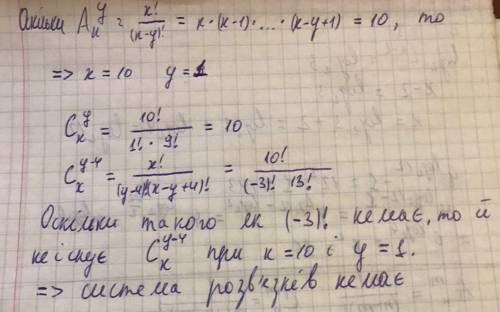 Оскільки A_x^y = x!/(x-y)! = x·(x-1)·...·(x-y+1) = 10, то
=> x = 10 y = 1
C_x^y = 10!/(1!·9!) = 10
C_x^{y-4} = x!/((y-4)!(x-y+4)!) = 10!/((-3)! 13!)
Оскільки такого як (-3)! немає, то й
не існує C_x^{y-4} при x=10 і y=1.
=> система розв'язків немає